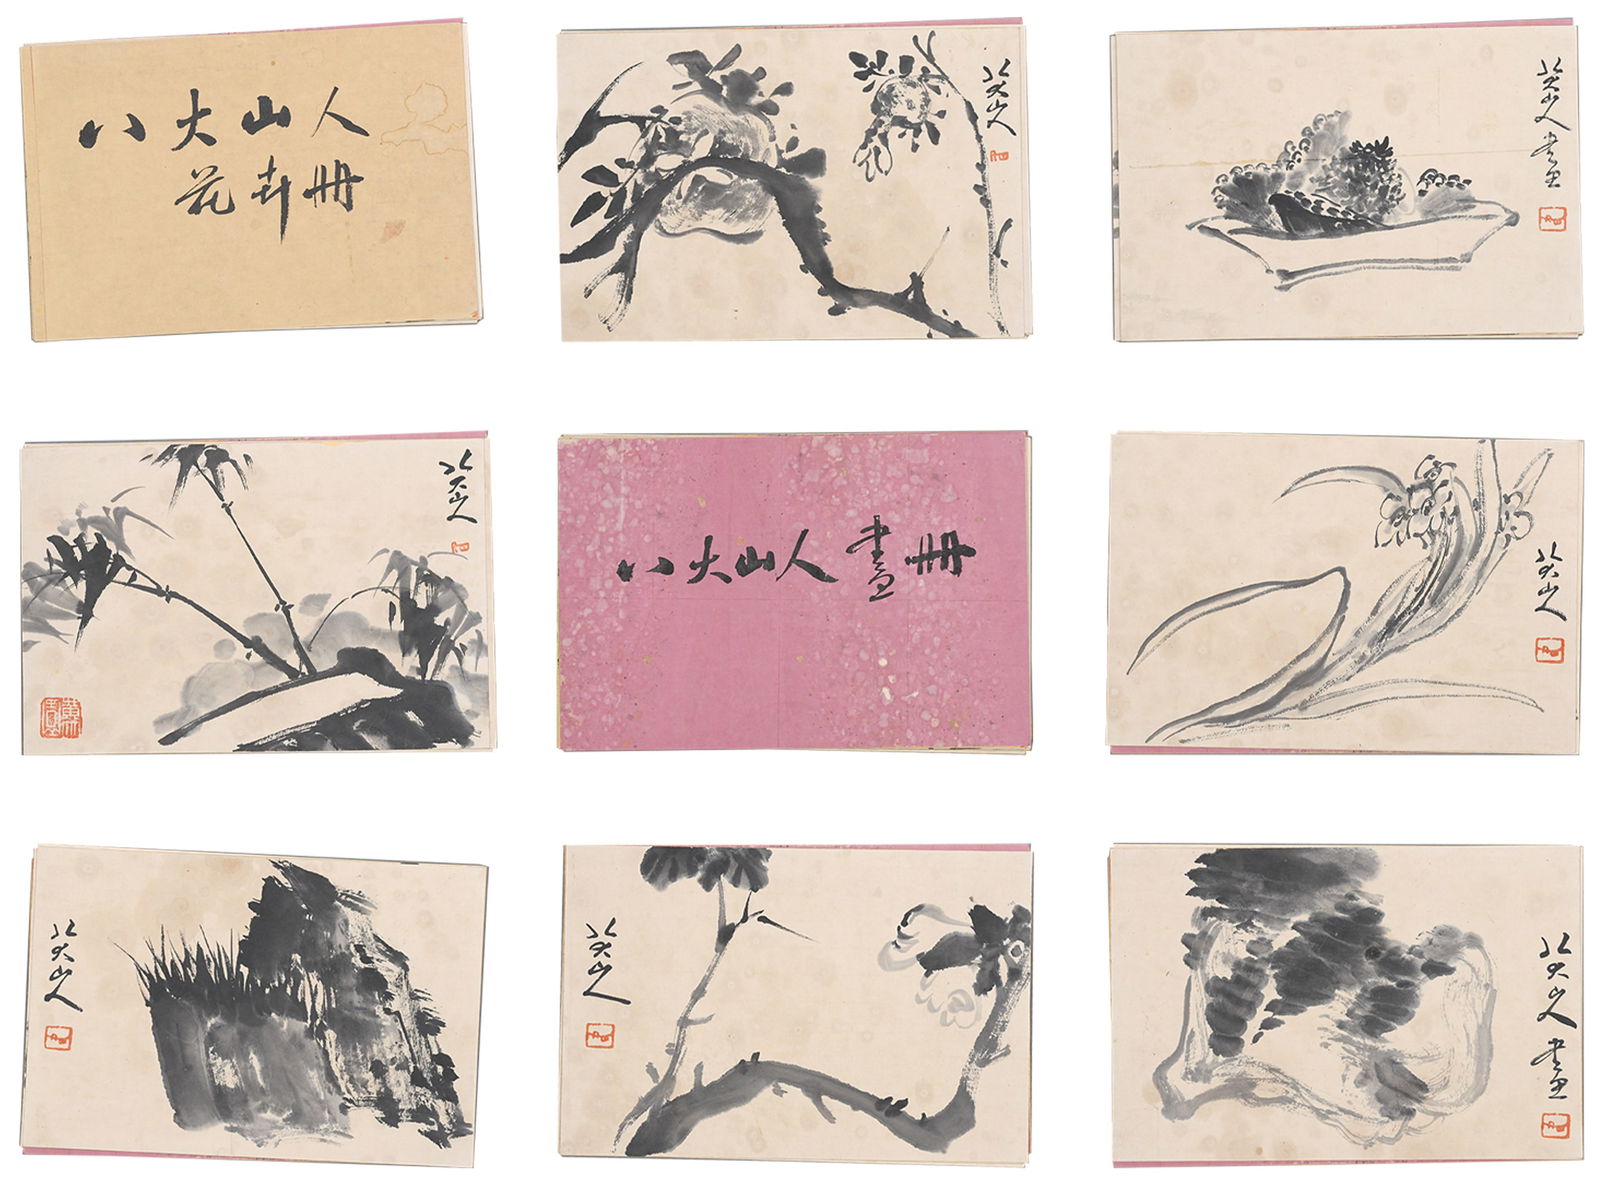 八大山人
花卉冊
八大山人
八大山人畫
八大山人
八大山人畫冊
八大山人
八大山人
八大山人
八大山人畫